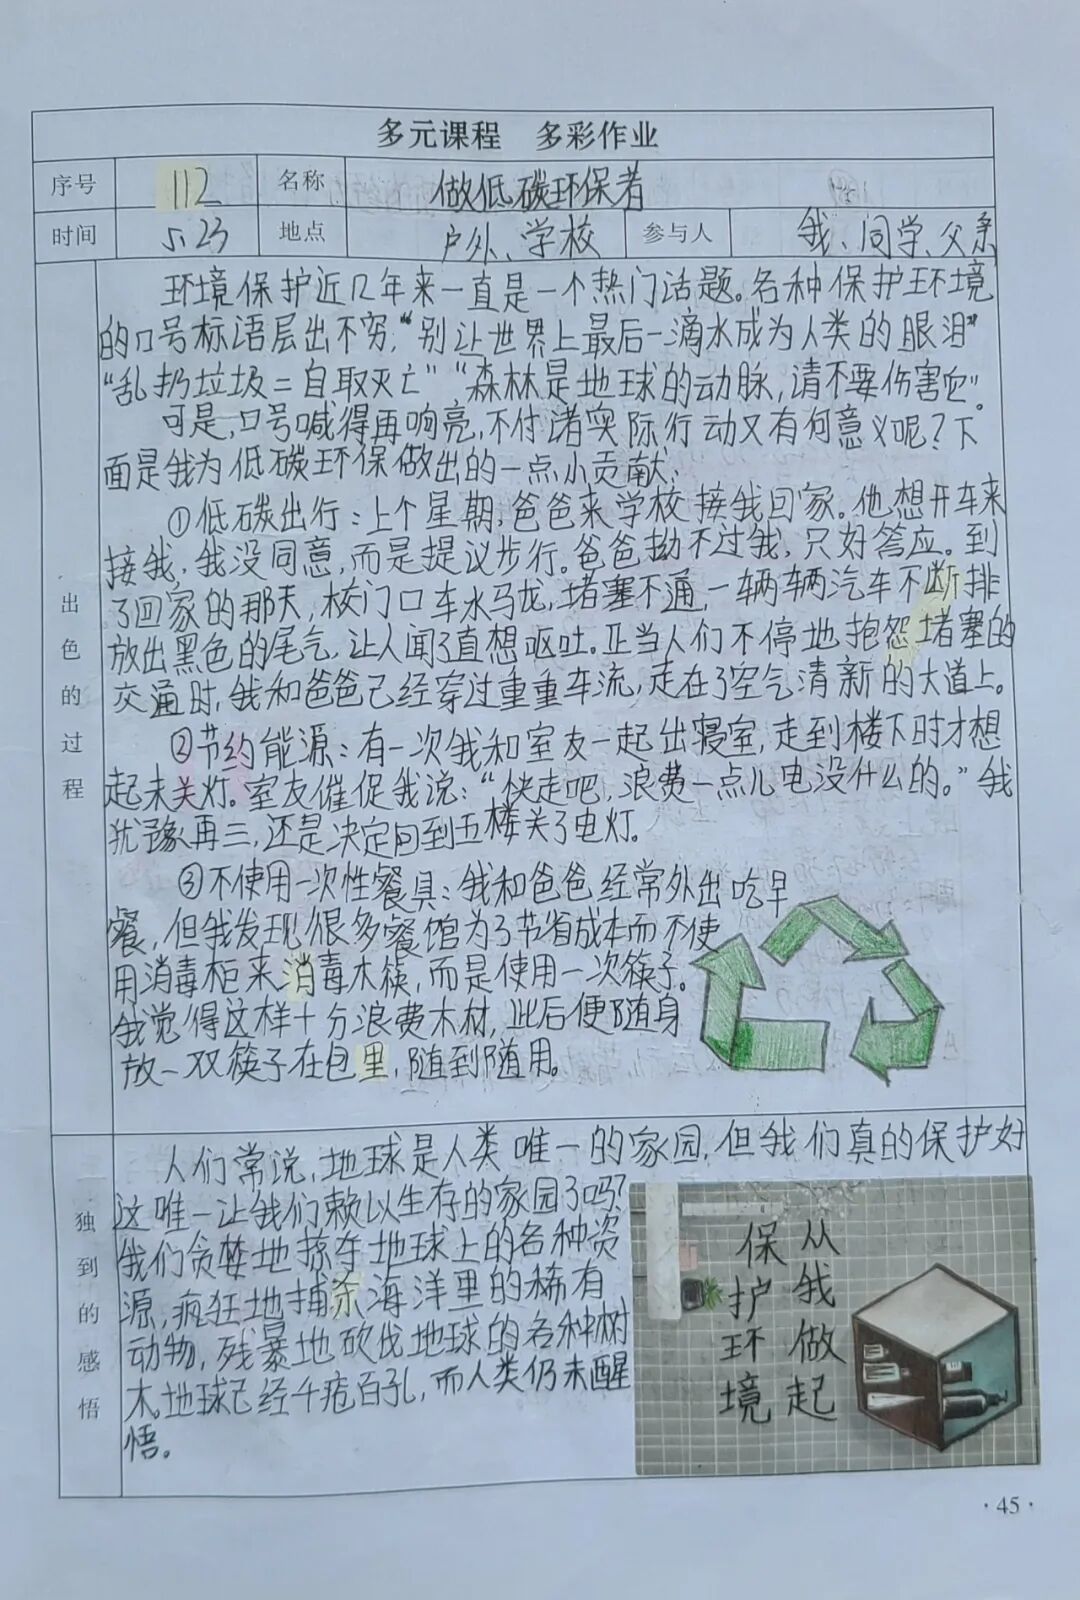 多元课程　多彩作业
序号 112 名称 做低碳环保者
时间 5.23 地点 户外、学校 参与人 我、同学、父亲
出色的过程
环境保护近几年来一直是一个热门话题。各种保护环境
的口号标语层出不穷：“别让世界上最后一滴水成为人类的眼泪”
“乱扔垃圾=自取灭亡”“森林是地球的动脉，请不要伤害它”。
可是，口号喊得再响亮，不付诸实际行动又有何意义呢？下
面是我为低碳环保做出的一点小贡献：
①低碳出行：上个星期，爸爸来学校接我回家。他想开车来
接我，我没同意，而是提议步行。爸爸拗不过我，只好答应。到
了回家的那天，校门口车水马龙，堵塞不通，一辆辆汽车不断排
放出黑色的尾气，让人闻了直想呕吐。正当人们不停地抱怨堵塞的
交通时，我和爸爸已经穿过重重车流，走在了空气清新的大道上。
②节约能源：有一次我和室友一起出寝室，走到楼下时才想
起未关灯。室友催促我说：“快走吧，浪费一点儿电没什么的。”我
犹豫再三，还是决定回到五楼关了电灯。
③不使用一次性餐具：我和爸爸经常外出吃早
餐，但我发现很多餐馆为了节省成本而不使
用消毒柜来消毒木筷，而是使用一次筷子。
我觉得这样十分浪费木材，此后便随身
放一双筷子在包里，随到随用。
独到的感悟
人们常说，地球是人类唯一的家园，但我们真的保护好
这唯一让我们赖以生存的家园了吗？
我们贪婪地掠夺地球上的各种资
源，疯狂地捕杀海洋里的稀有
动物，残暴地砍伐地球的各种树
木。地球已经千疮百孔，而人类仍未醒
悟。
从我做起
保护环境
·45·